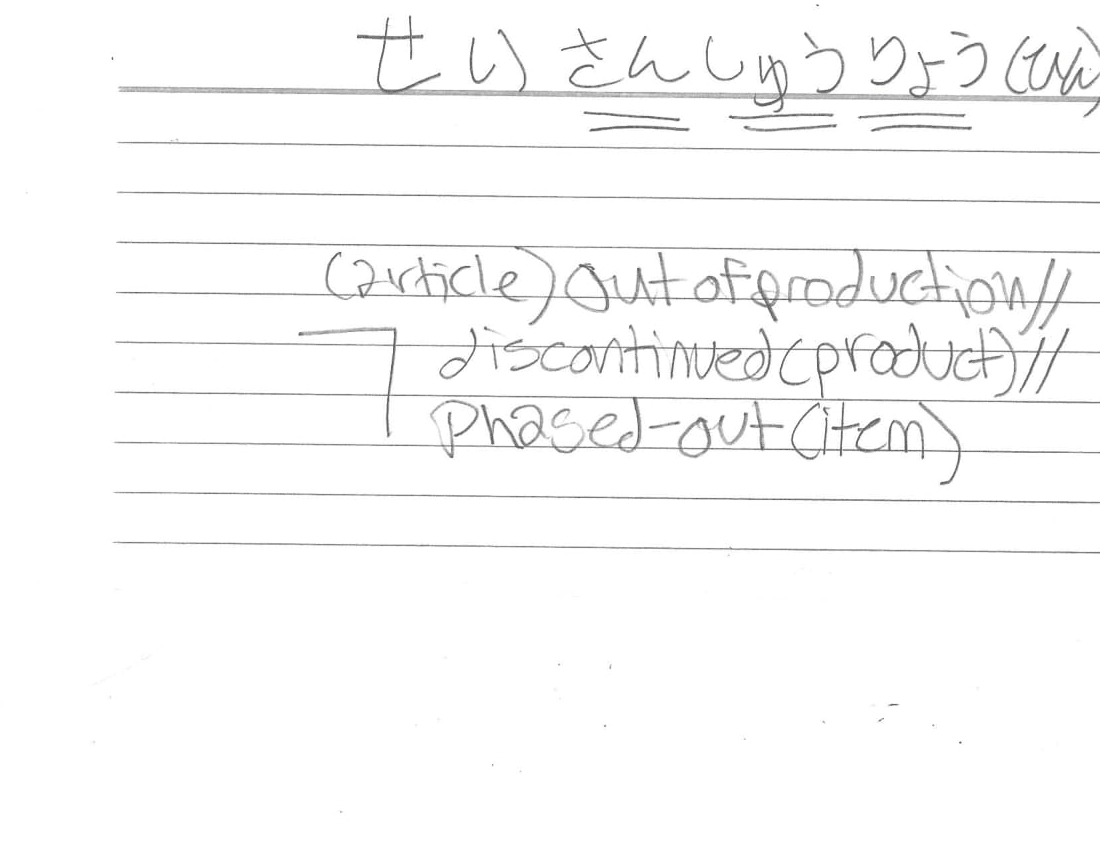 せいさんしゅうりょう(ひん)
(article) out of production//
discontinued (product)//
phased-out (item)